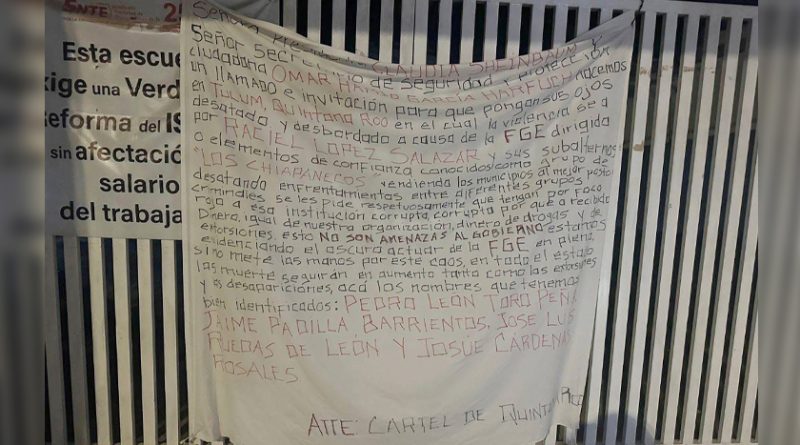 SNTE
Esta escue
xige una Verd
eforma del IS
sin afectació
salario
del trabaja
Señora Pres CLAUDIA SHEINBAUM y
Señor Secretario de Seguridad y protección
ciudadana OMAR HAMID GARCIA HARFUCH hacemos
un llamado e invitación para que pongan sus ojos
en TULUM, QUINTANA ROO en el cual la violencia se a
desatado y desbordado a causa de la FGE dirigida
por RACIEL LOPEZ SALAZAR y sus subalternos
o elementos de confianza conocidos como grupo de
"LOS CHIAPANECOS vendiendo los municipios al mejor postor
desatando enfrentamientos entre diferentes grupos
criminales se les pide respetuosamente que tengan por foco
rojo a esa institución corrupta, corrupta por que a recibido
Dinero, igual de nuestra organización, dinero de drogas y de
extorsiones, esto NO SON AMENAZAS AL GOBIERNO estamos
evidenciando el oscuro actuar de la FGE en plena,
si no mete las manos por este caos, en todo el estado
las muerte seguiran en aumento tanto como las extorsiones
y las desapariciones, acá los nombres que tenemos
bien identificados: PEDRO LEÓN TORO PEÑA
JAIME PADILLA BARRIENTOS, JOSE LUIS
RUEDAS DE LEÓN Y JOSÚE CÁRDENAS
ROSALES
ATTE: CARTEL DE QUINTANA ROO